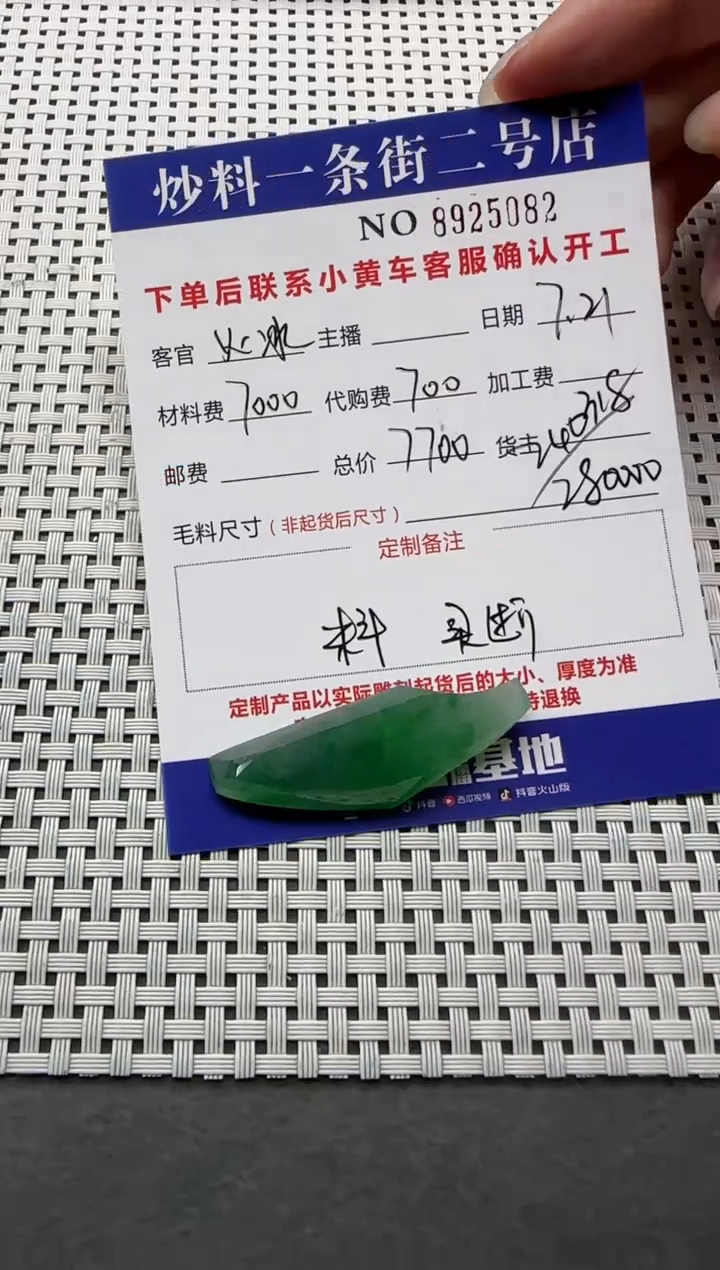 炒料一条街二号店
NO 8925082
下单后联系小黄车客服确认开工
客官 火冰 主播 日期 7.21
材料费 7000 代购费 700 加工费
邮费 总价 7700 货主
280000
毛料尺寸(非起货后尺寸)
定制备注
料 买断
定制产品以实际雕刻起货后的大小、厚度为准
退换
播基地
抖音 西瓜视频 抖音火山版